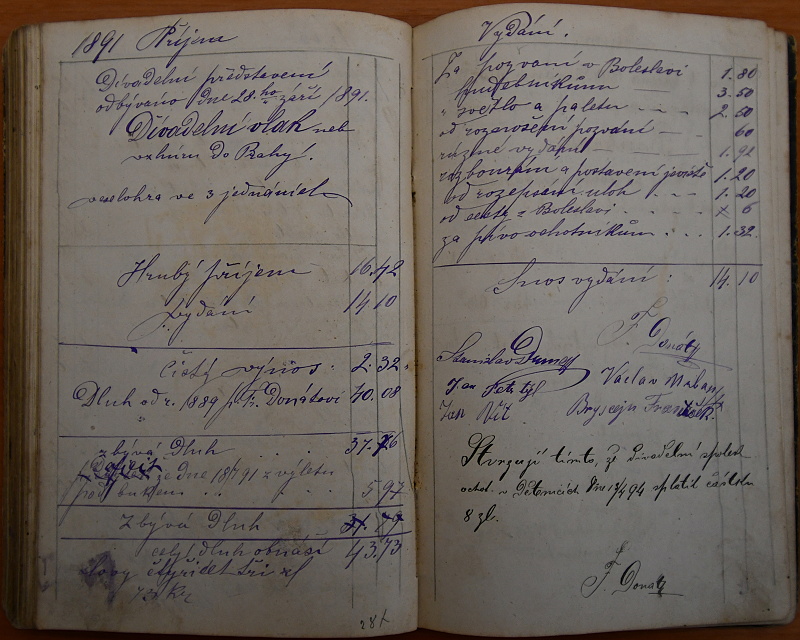 1891 Příjem
Divadelní představení
odbýváno dne 28.ho září 1891.
Divadelní vlak neb
vzhůru do Prahy.
veselohra ve 3 jednáních
Hrubý příjem 16.42
vydání 14.10
čistý výnos: 2.32
Dluh od r. 1889 p. F. Donátovi 40.08
zbývá Dluh 37.76
ze dne 18/7 91 z výletu
pod 5 97
Zbývá Dluh
celý dluh obnáší 43.73
slovy čtyřicet tři zl
73 Kr
Vydání.
Za pozvání v Boleslavi 1.80
hudebníkům 3.50
" světlo a paletu 2.50
od roznošení pozvání 60
různé vydání 1.92
rozbourání a postavení jeviště 1.20
od rozepsání uloh 1.20
od cesty z Boleslavi 6
za pivo ochotníkům 1.32
Snos vydání: 14.10
F. Donát
Stanislav
Jan Václav
Jan Vít František
Stvrzuji tímto, že divadelní spolek
ochot. v Dětenicích dne splatil částku
8 zl.
F. Donát